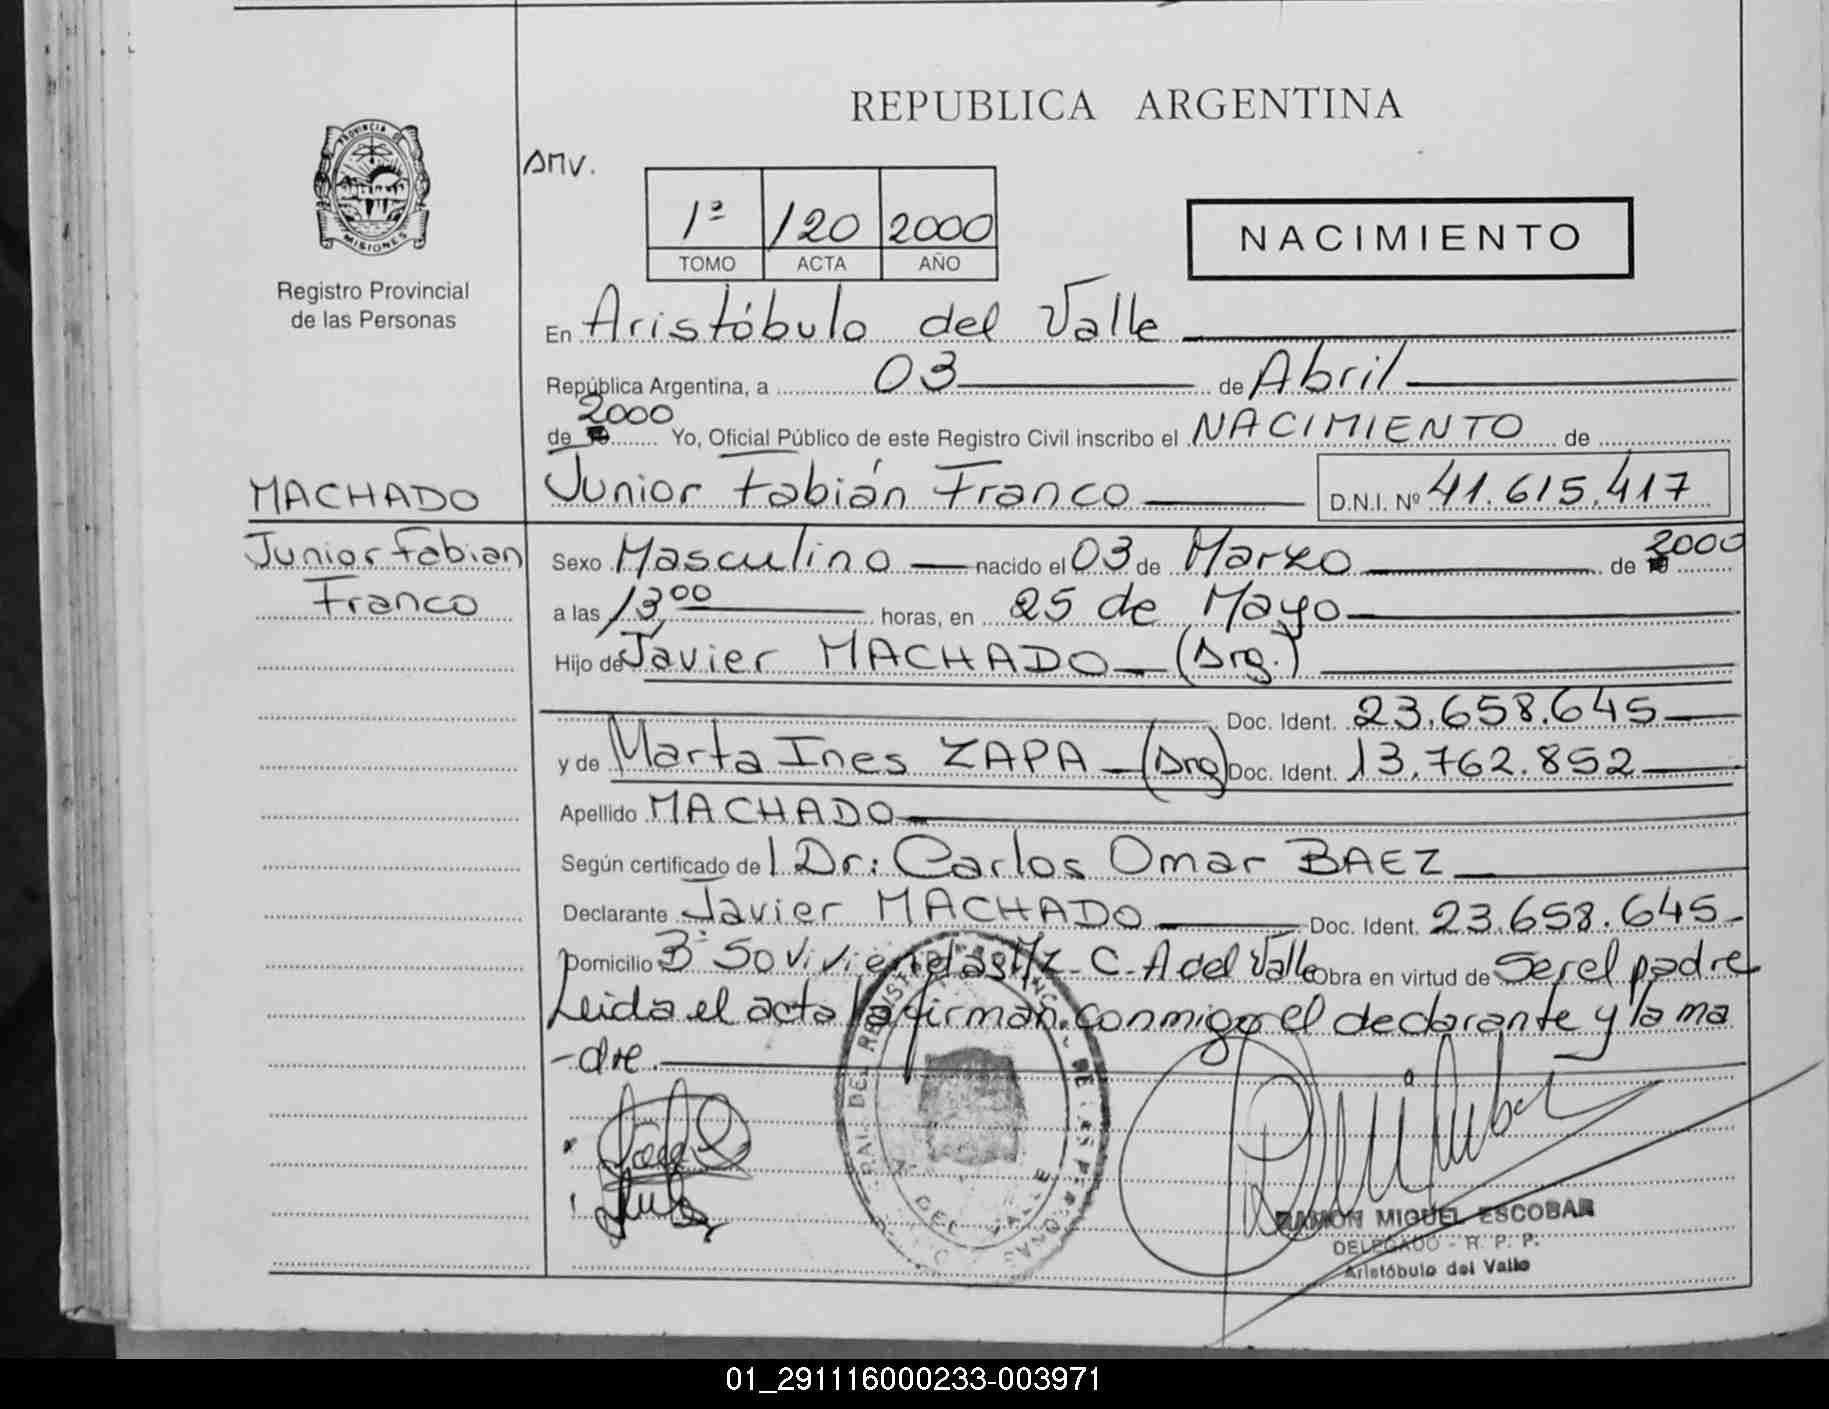 REPUBLICA ARGENTINA
PROVINCIA DE
MISIONES
Registro Provincial
de las Personas
1ª 120 2000
TOMO ACTA AÑO
NACIMIENTO
En Aristóbulo del Valle
República Argentina, a 03 de Abril
2000
de Yo, Oficial Público de este Registro Civil inscribo el NACIMIENTO de
MACHADO
Junior Fabián Franco D.N.I. Nº 41.615.417
Junior Fabian
Franco
Sexo Masculino nacido el 03 de Marzo de 2000
a las 13,00 horas, en 25 de Mayo
Hijo de Javier MACHADO (Arg.)
Doc. Ident. 23.658.645
y de Marta Ines ZAPA (Arg) Doc. Ident. 13.762.852
Apellido MACHADO
Según certificado del Dr: Carlos Omar BAEZ
Declarante Javier MACHADO Doc. Ident. 23.658.645
Domicilio Bº 50 Viviendas Mz-C-A del Valle Obra en virtud de Ser el padre
Leida el acta la firman conmigo el declarante y la ma
-dre.
RAMON MIGUEL ESCOBAR
DELEGADO - R. P. P.
Aristóbulo del Valle
01_291116000233-003971